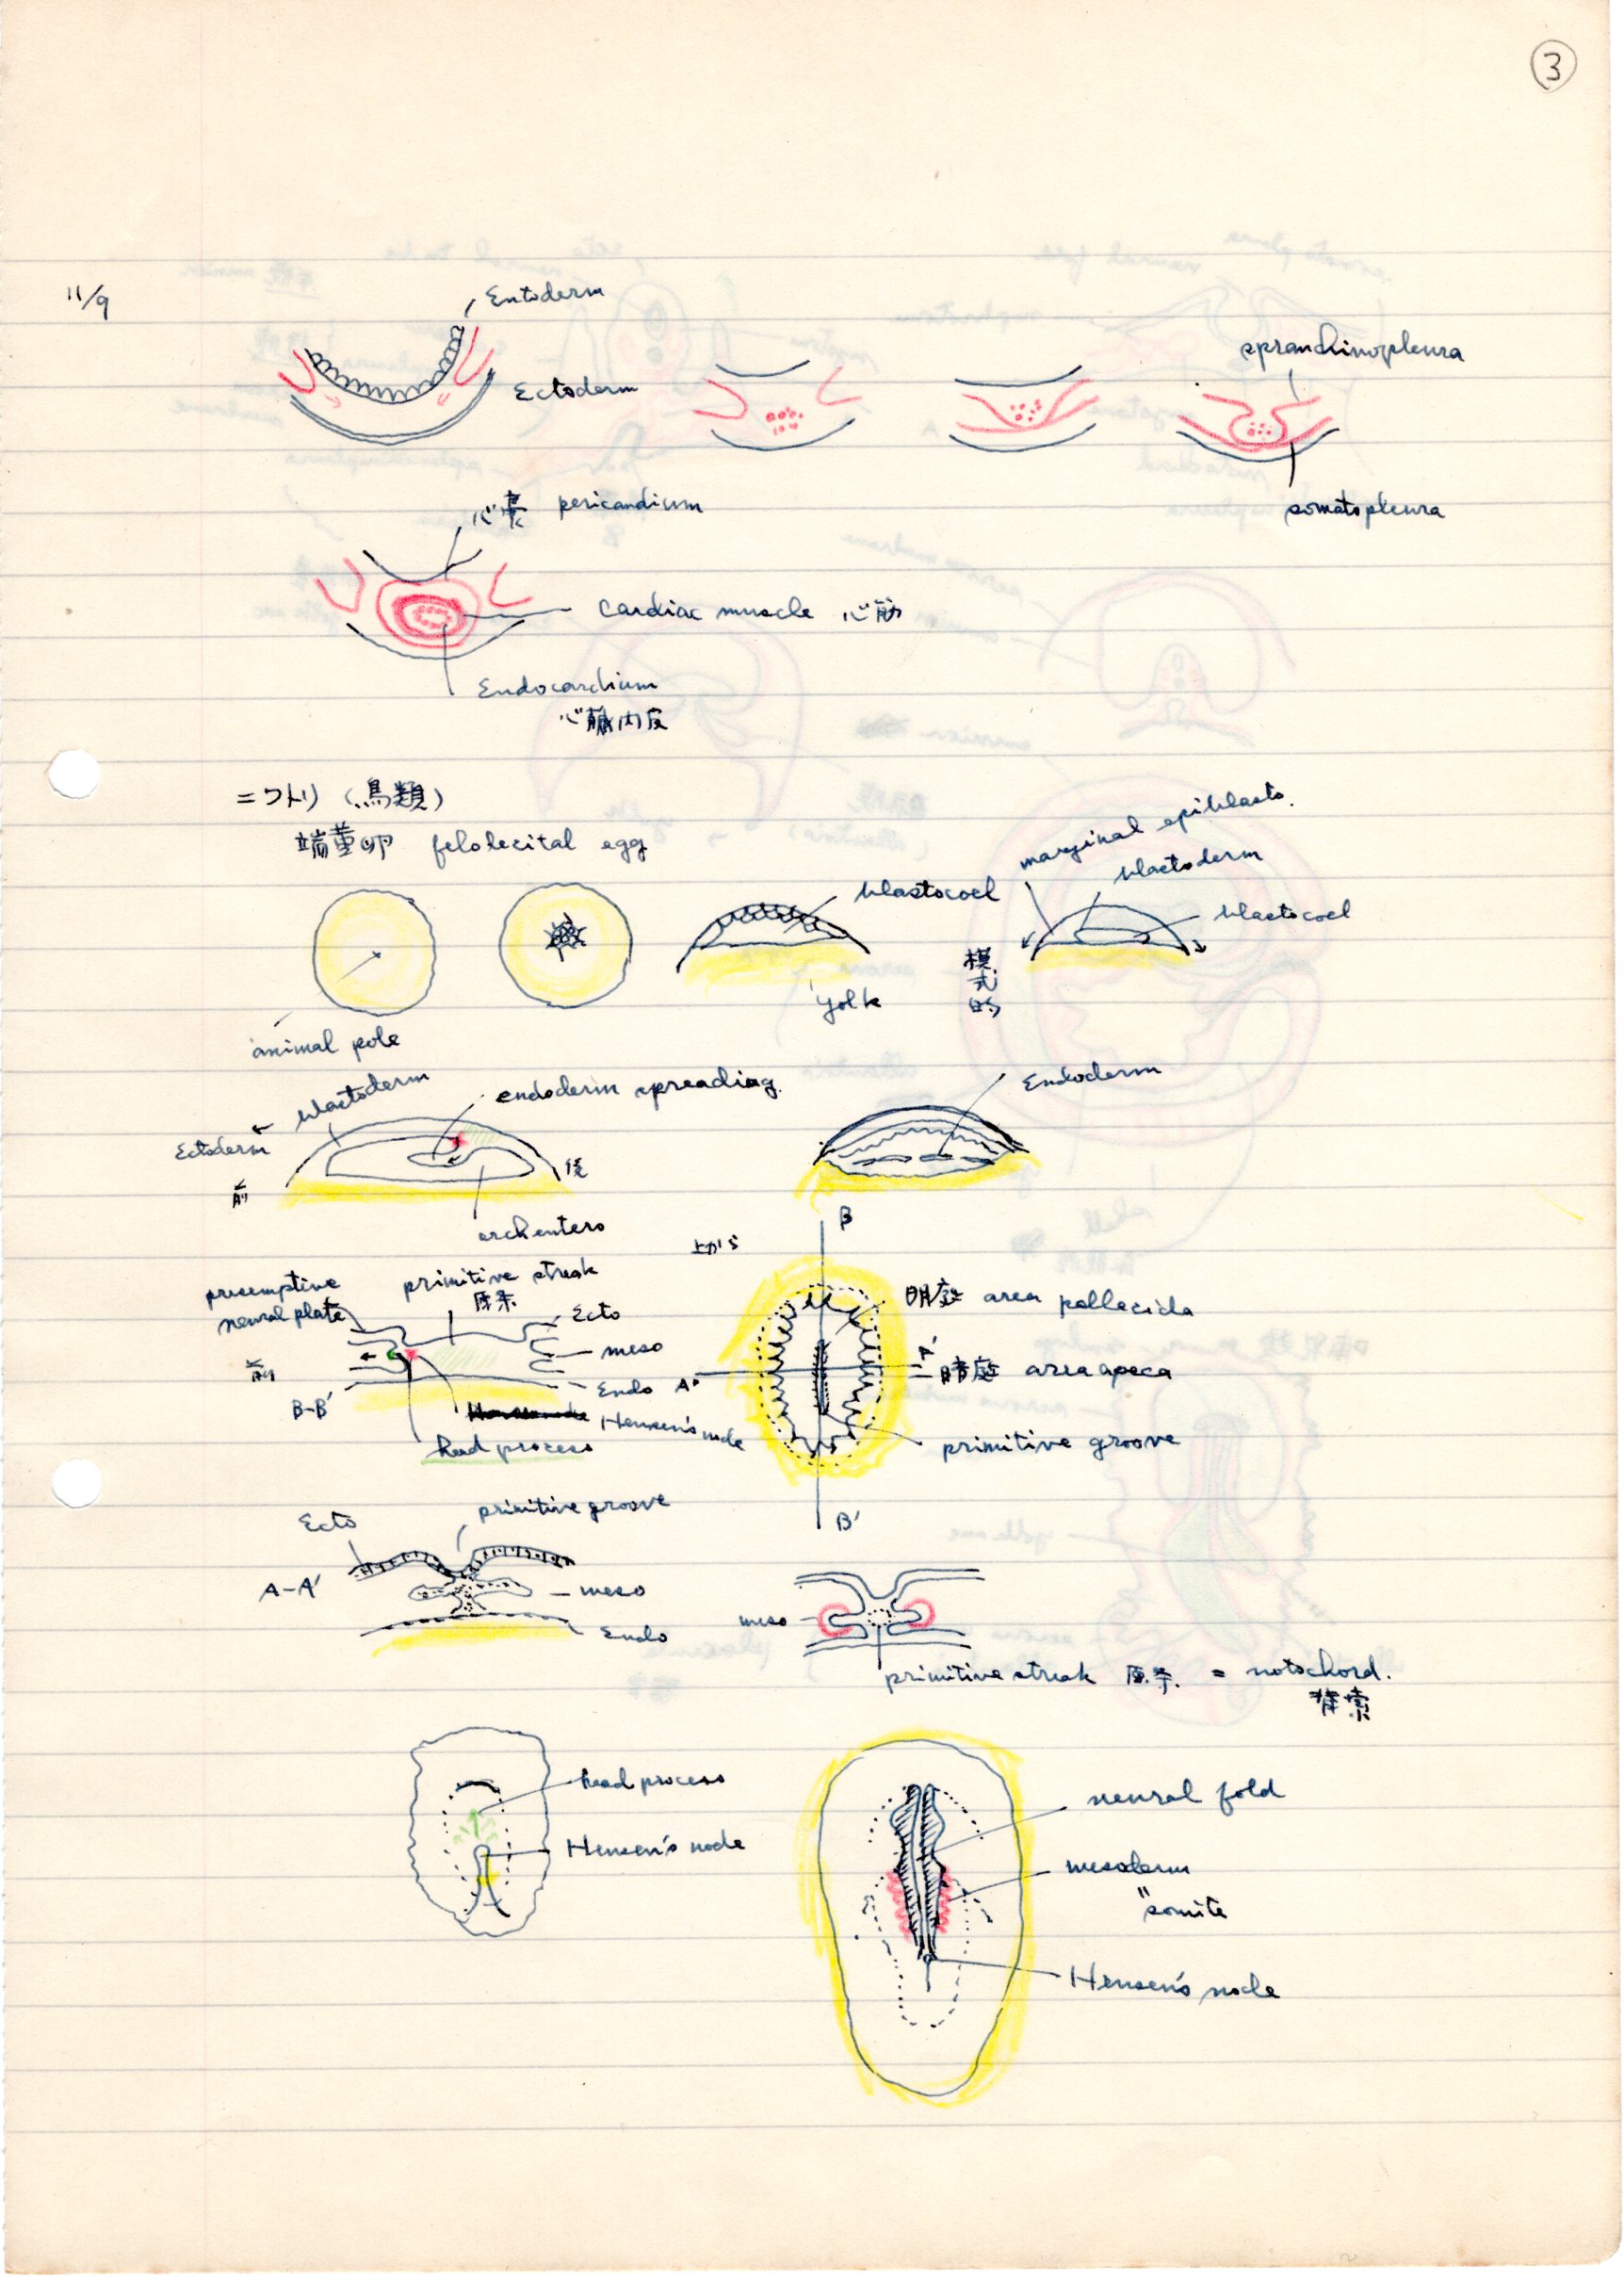 3
11/9
Entoderm
Ectoderm
spranchinopleura
somatopleura
心嚢 pericandium
cardiac muscle 心筋
Endocardium
心臓内皮
ニワトリ (鳥類)
端黄卵 felolecital egg
animal pole
blastocoel
yolk
模式的
marginal epiblasto.
blastoderm
blastocoel
Ectoderm ← blastoderm
endoderm spreading.
前
後
archentero
Endoderm
presemptive
neural plate
primitive streak
原条
Ecto
meso
Endo
前
B-B'
Hensen's node
head process
上から
B
明域 area pellecida
A
A'
暗域 area apeca
primitive groove
B'
Ecto
primitive groove
A-A'
meso
Endo
meso
primitive streak 原条. = notochord.
脊索
head process
Hensen's node
neural fold
mesoderm
"somite
Hensen's node